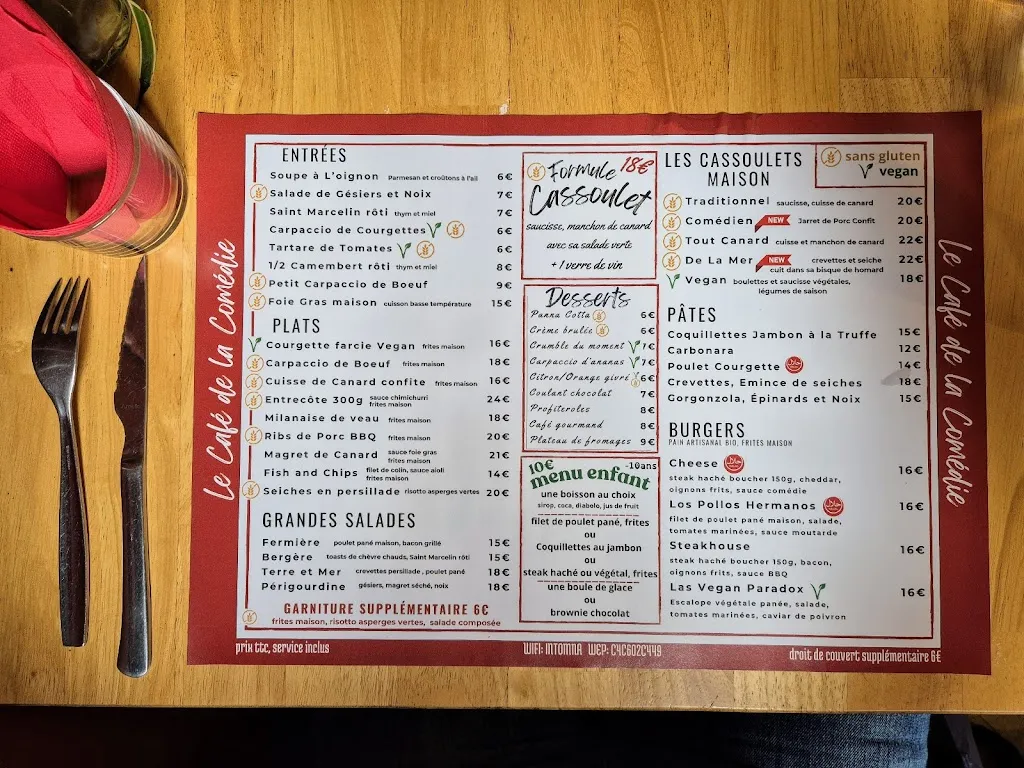 Le Café de la Comédie
ENTRÉES
Soupe à L'oignon Parmesan et croûtons à l'ail 6€
Salade de Gésiers et Noix 7€
Saint Marcelin rôti thym et miel 7€
Carpaccio de Courgettes 6€
Tartare de Tomates 6€
1/2 Camembert rôti thym et miel 8€
Petit Carpaccio de Boeuf 9€
Foie Gras maison cuisson basse température 15€
PLATS
Courgette farcie Vegan frites maison 16€
Carpaccio de Boeuf frites maison 18€
Cuisse de Canard confite frites maison 16€
Entrecôte 300g sauce chimichurri 24€
frites maison
Milanaise de veau frites maison 18€
Ribs de Porc BBQ frites maison 20€
Magret de Canard sauce foie gras 21€
frites maison
Fish and Chips filet de colin, sauce aioli 14€
frites maison
Seiches en persillade risotto asperges vertes 20€
GRANDES SALADES
Fermière poulet pané maison, bacon grillé 15€
Bergère toasts de chèvre chauds, Saint Marcelin rôti 15€
Terre et Mer crevettes persillade, poulet pané 18€
Périgourdine gésiers, magret séché, noix 18€
GARNITURE SUPPLÉMENTAIRE 6€
frites maison, risotto asperges vertes, salade composée
Formule 18€
Cassoulet
saucisse, manchon de canard
avec sa salade verte
+ 1 verre de vin
Desserts
Panna Cotta 6€
Crème brulée 6€
Crumble du moment 7€
Carpaccio d'ananas 7€
Citron/Orange givré 6€
Coulant chocolat 7€
Profiteroles 8€
Café gourmand 8€
Plateau de fromages 9€
10€ -10ans
menu enfant
une boisson au choix
sirop, coca, diabolo, jus de fruit
filet de poulet pané, frites
ou
Coquillettes au jambon
ou
steak haché ou végétal, frites
une boule de glace
ou
brownie chocolat
LES CASSOULETS
MAISON
sans gluten
vegan
Traditionnel saucisse, cuisse de canard 20€
Comédien NEW Jarret de Porc Confit 20€
Tout Canard cuisse et manchon de canard 22€
De La Mer NEW crevettes et seiche 22€
cuit dans sa bisque de homard
Vegan boulettes et saucisse végétales, 18€
légumes de saison
PÂTES
Coquillettes Jambon à la Truffe 15€
Carbonara 12€
Poulet Courgette 14€
Crevettes, Emince de seiches 18€
Gorgonzola, Épinards et Noix 15€
BURGERS
PAIN ARTISANAL BIO, FRITES MAISON
Cheese 16€
steak haché boucher 150g, cheddar,
oignons frits, sauce comédie
Los Pollos Hermanos 16€
filet de poulet pané maison, salade,
tomates marinées, sauce moutarde
Steakhouse 16€
steak haché boucher 150g, bacon,
oignons frits, sauce BBQ
Las Vegan Paradox 16€
Escalope végétale panée, salade,
tomates marinées, caviar de poivron
Le Café de la Comédie
prix ttc, service inclus
WIFI: INTOMILA WEP: C4C602C449
droit de couvert supplémentaire 6€